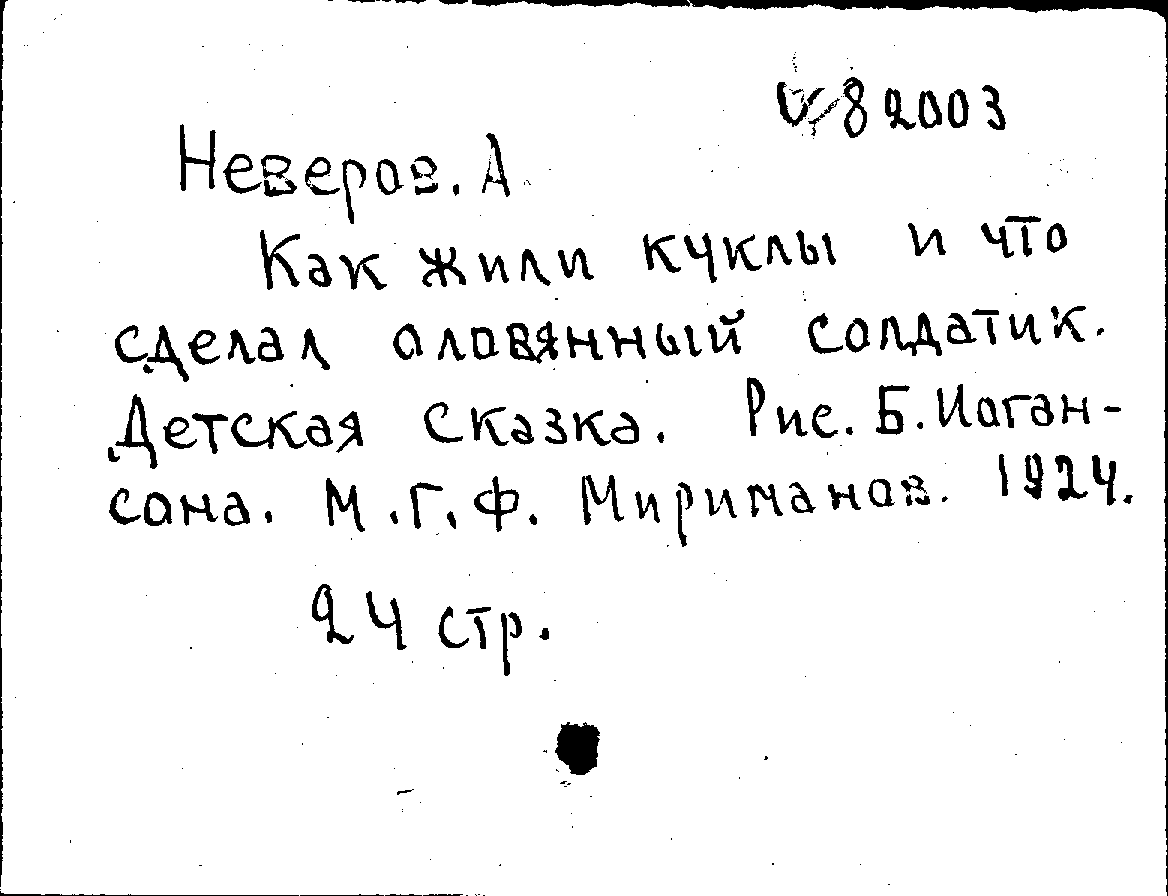 82003
Неверов. А
Как жили куклы и что
сделал оловянный солдатик.
Детская сказка. Рис. Б. Иоган-
сона. М. Г. Ф. Мириманов. 1924.
24 стр.